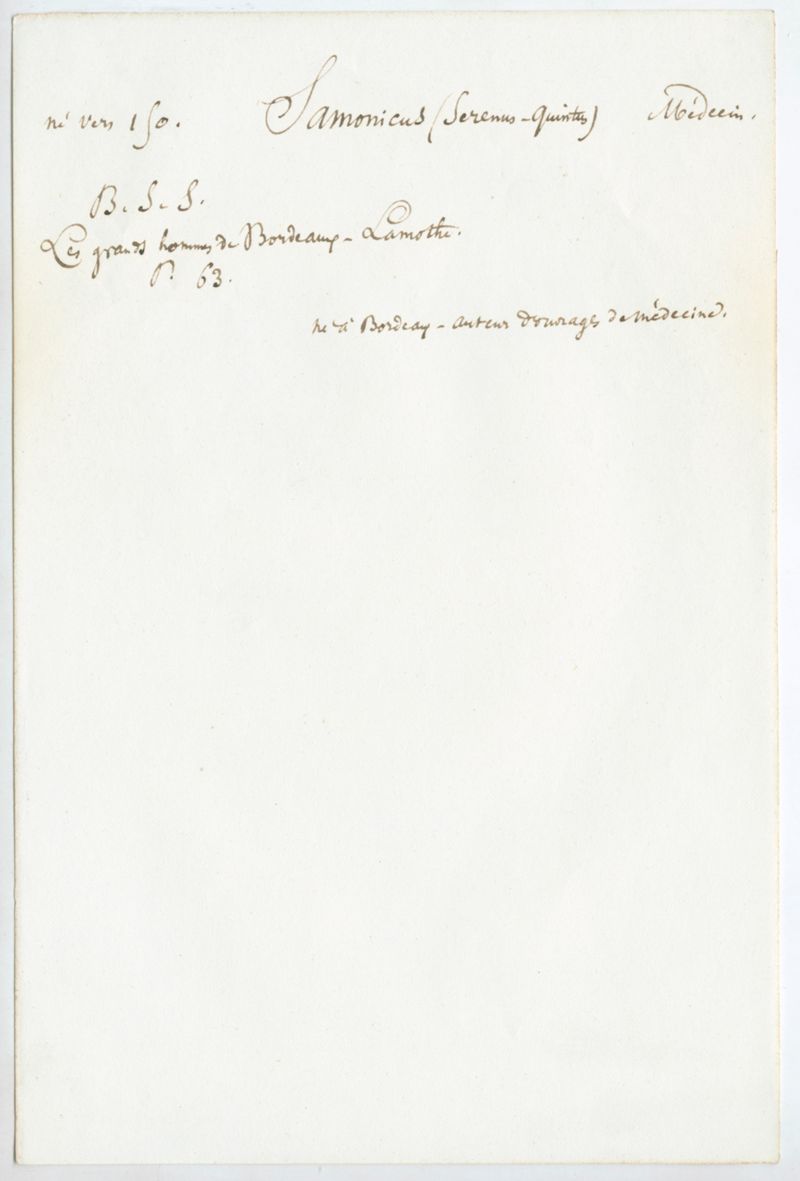 né vers 150. Samonicus (Serenus-Quintus) Médecin.
B. S. S.
Les grands hommes de Bordeaux - Lamothe.
P. 63.
né à Bordeaux - auteur d'ouvrages de médecine.